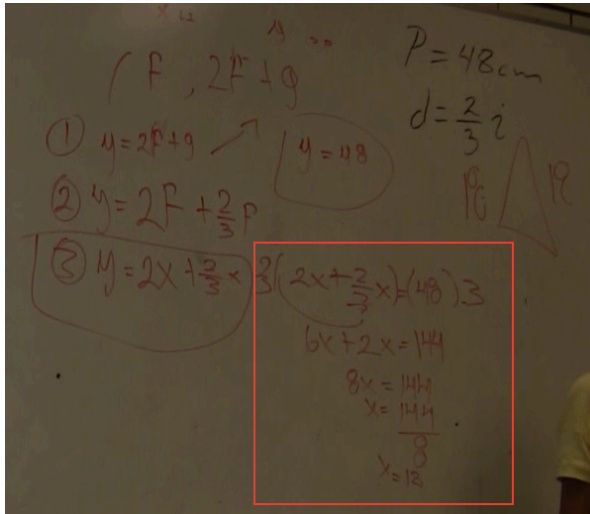 P = 48 cm
d = 2/3 i
( F , 2F + 9
① y = 2F + 9
y = 48
② y = 2F + 2/3 F
③ y = 2x + 2/3 x
3(2x + 2/3 x) = (48) 3
6x + 2x = 144
8x = 144
x = 144/8
x = 18